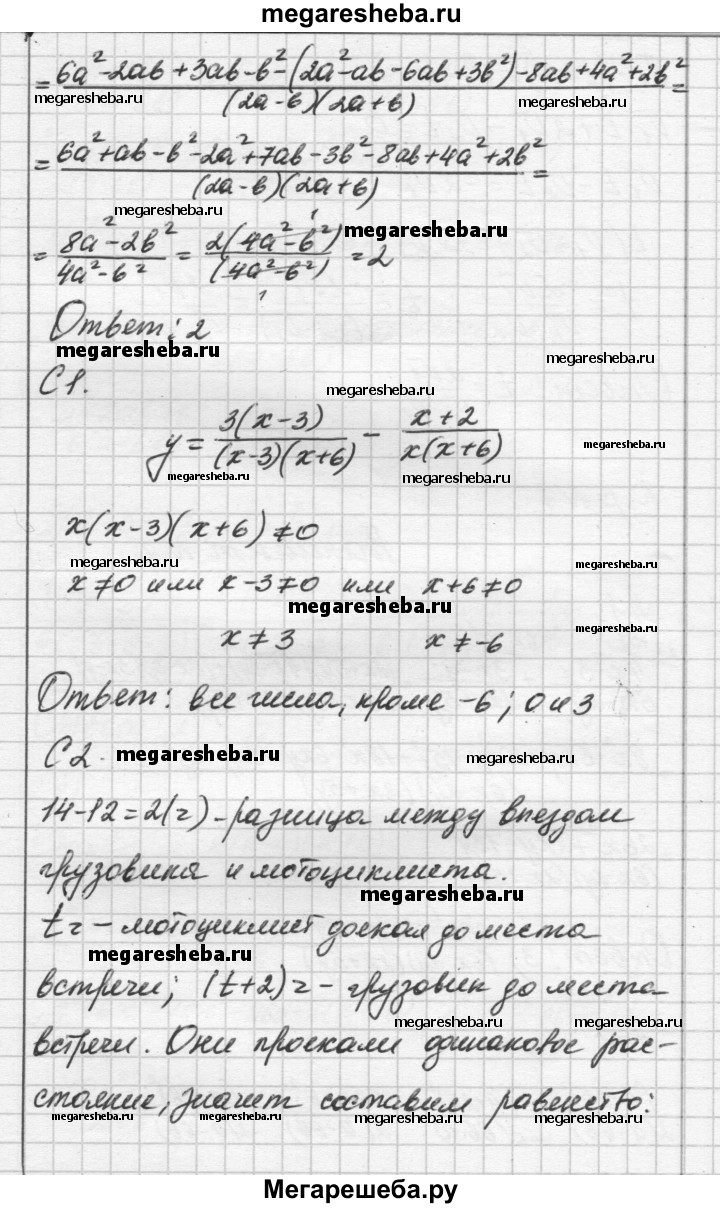 megaresheba.ru
= 6a² - 2ab + 3ab - b² - (2a² - ab - 6ab + 3b²) - 8ab + 4a² + 2b² / (2a - b)(2a + b) =
megaresheba.ru megaresheba.ru
= 6a² + ab - b² - 2a² + 7ab - 3b² - 8ab + 4a² + 2b² / (2a - b)(2a + b) =
megaresheba.ru
= 8a² - 2b² / 4a² - b² = 2(4a² - b²) 1 / (4a² - b²) 1 = 2
megaresheba.ru
Ответ: 2
megaresheba.ru megaresheba.ru
С1.
megaresheba.ru
y = 3(x - 3) / (x - 3)(x + 6) - x + 2 / x(x + 6)
megaresheba.ru
megaresheba.ru megaresheba.ru
x(x - 3)(x + 6) ≠ 0
megaresheba.ru megaresheba.ru
x ≠ 0 или x - 3 ≠ 0 или x + 6 ≠ 0
megaresheba.ru megaresheba.ru
x ≠ 3 x ≠ -6
Ответ: все числа, кроме -6; 0 и 3
С2. megaresheba.ru megaresheba.ru
14 - 12 = 2(ч) - разница между въездом
грузовика и мотоциклиста.
megaresheba.ru
t ч - мотоциклист доехал до места
megaresheba.ru
встречи; (t + 2) ч - грузовик до места
megaresheba.ru megaresheba.ru
встречи. Они проехали одинаковое рас-
стояние, значит составим равенство:
megaresheba.ru megaresheba.ru megaresheba.ru megaresheba.ru
Мегарешеба.ру